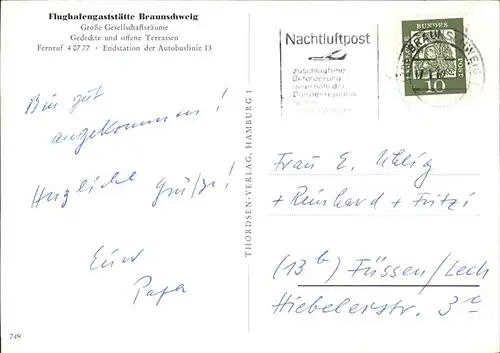 Flughafengaststätte Braunschweig
Große Gesellschaftsräume
Gedeckte und offene Terrassen
Fernruf 4 07 77 · Endstation der Autobuslinie 13
Bin gut
angekommen!
Herzliche Grüße!
Euer
Papa
749
THORDSEN-VERLAG, HAMBURG 1
Nachtluftpost
zuschlagfreie
Beförderung
innerhalb der
Bundesrepublik
DEUTSCHE BUNDESPOST
10
BRAUNSCHWEIG
Frau E. Uhlig
+ Reinhard + Fritzi
(13b) Füssen/Lech
Hiebelerstr. 3c